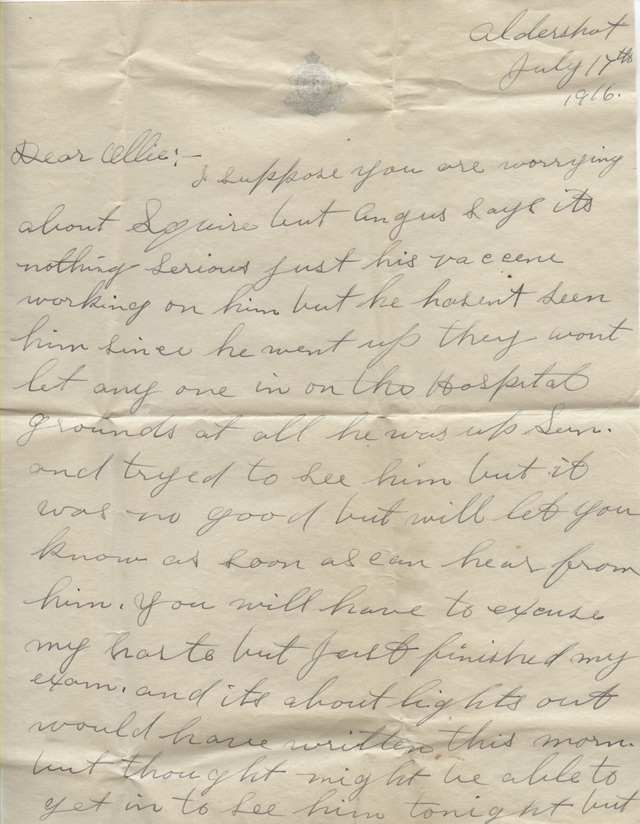 Aldershot
July 17th
1916.
Dear Ollie:-
I suppose you are worrying
about Squire but Angus says its
nothing serious just his vaccene
working on him but he hasent seen
him since he went up they wont
let any one in on the Hospital
grounds at all he was up Sun.
and tryed to see him but it
was no good but will let you
know as soon as can hear from
him. You will have to excuse
my haste but just finished my
exam. and its about lights out
would have written this morn.
but thought might be able to
get in to see him tonight but